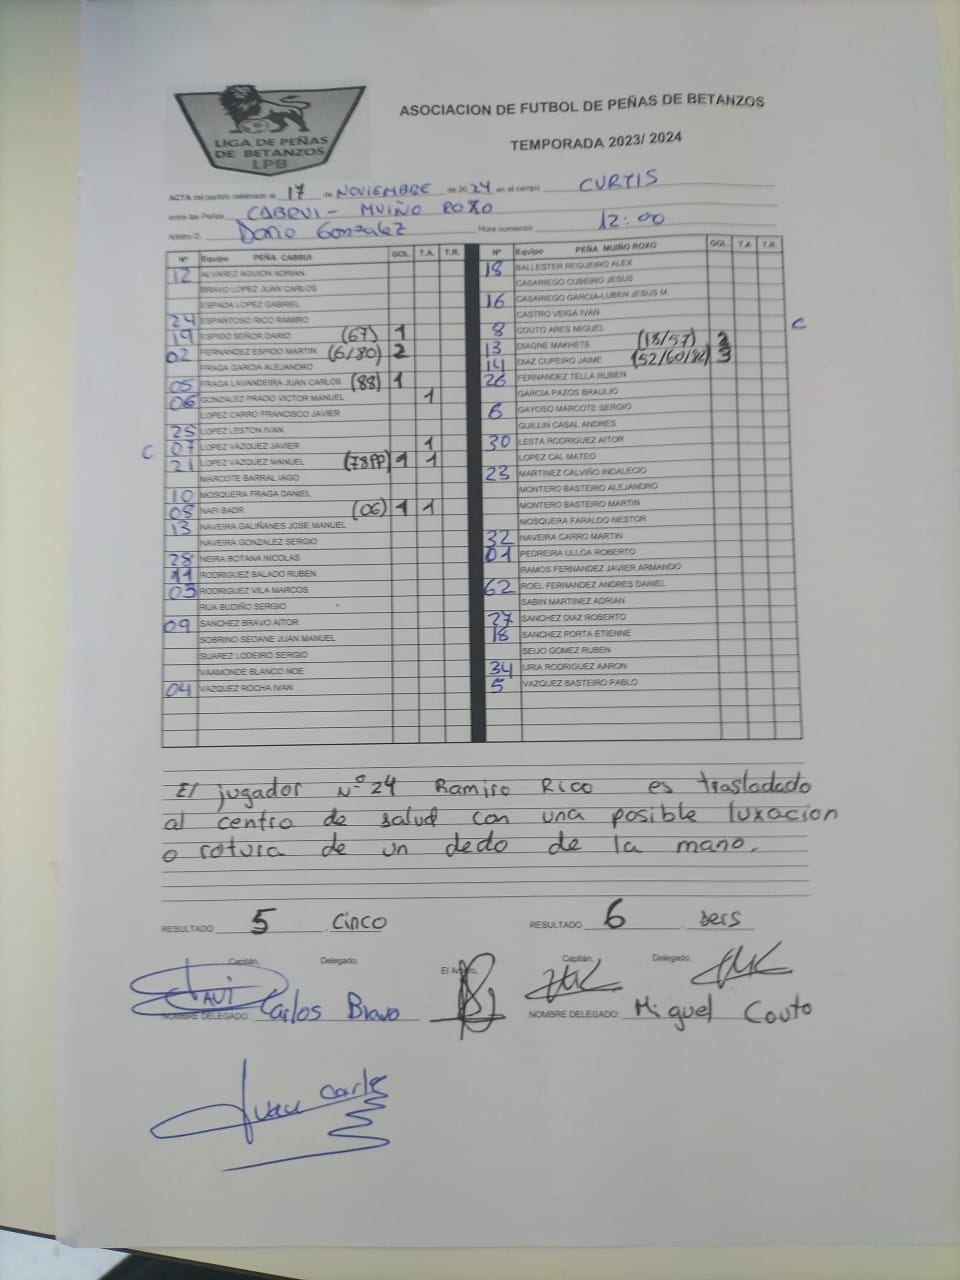 LIGA DE PEÑAS
DE BETANZOS
LPB
ASOCIACION DE FUTBOL DE PEÑAS DE BETANZOS
TEMPORADA 2023/ 2024
ACTA del partido celebrado el 17 de NOVIEMBRE de 2024 en el campo CURTIS
entre las Peñas CABRUI - MUIÑO ROXO
Arbitro D: Dario Gonzalez Hora comienzo 12:00
Nº Equipo PEÑA CABRUI GOL. T.A. T.R. Nº Equipo PEÑA MUIÑO ROXO GOL. T.A. T.R.
12 ALVAREZ AGUION ADRIAN 18 BALLESTER REGUEIRO ALEX
BRAVO LOPEZ JUAN CARLOS CASARIEGO CUBEIRO JESUS
ESPADA LOPEZ GABRIEL 16 CASARIEGO GARCIA-LUBEN JESUS M.
24 ESPANTOSO RICO RAMIRO CASTRO VEIGA IVAN
19 ESPIDO SEÑOR DARIO (67) 1 8 COUTO ARES MIGUEL C
02 FERNANDEZ ESPIDO MARTIN (6/80) 2 13 DIAGNE MAKHETE (18/57) 2
FRAGA GARCIA ALEJANDRO 14 DIAZ CUPEIRO JAIME (52/60/82) 3
05 FRAGA LAVANDEIRA JUAN CARLOS (88) 1 26 FERNANDEZ TELLA RUBEN
06 GONZALEZ PRADO VICTOR MANUEL 1 GARCIA PAZOS BRAULIO
LOPEZ CARRO FRANCISCO JAVIER 6 GAYOSO MARCOTE SERGIO
25 LOPEZ LESTON IVAN GUILLIN CASAL ANDRES
C 07 LOPEZ VAZQUEZ JAVIER 1 30 LESTA RODRIGUEZ AITOR
21 LOPEZ VAZQUEZ MANUEL (78PP) 1 1 LOPEZ CAL MATEO
MARCOTE BARRAL IAGO 23 MARTINEZ CALVIÑO INDALECIO
10 MOSQUERA FRAGA DANIEL MONTERO BASTEIRO ALEJANDRO
08 NAFI BADR (06) 1 1 MONTERO BASTEIRO MARTIN
13 NAVEIRA GALIÑANES JOSE MANUEL MOSQUERA FARALDO NESTOR
NAVEIRA GONZALEZ SERGIO 32 NAVEIRA CARRO MARTIN
28 NEIRA BOTANA NICOLAS 01 PEDREIRA ULLOA ROBERTO
11 RODRIGUEZ BALADO RUBEN RAMOS FERNANDEZ JAVIER ARMANDO
03 RODRIGUEZ VILA MARCOS 62 ROEL FERNANDEZ ANDRES DANIEL
RUA BUDIÑO SERGIO SABIN MARTINEZ ADRIAN
09 SANCHEZ BRAVO AITOR 27 SANCHEZ DIAZ ROBERTO
SOBRINO SEOANE JUAN MANUEL 18 SANCHEZ PORTA ETIENNE
SUAREZ LODEIRO SERGIO SEIJO GOMEZ RUBEN
VAAMONDE BLANCO NOE 34 URIA RODRIGUEZ AARON
04 VAZQUEZ ROCHA IVAN 5 VAZQUEZ BASTEIRO PABLO
El jugador Nº 24 Ramiro Rico es trasladado
al centro de salud con una posible luxacion
o rotura de un dedo de la mano.
RESULTADO 5 . Cinco RESULTADO 6 . seis
Capitán, Delegado, El Arbitro, Capitán, Delegado,
JAVI
NOMBRE DELEGADO Carlos Bravo NOMBRE DELEGADO: Miguel Couto
Juan Carlos